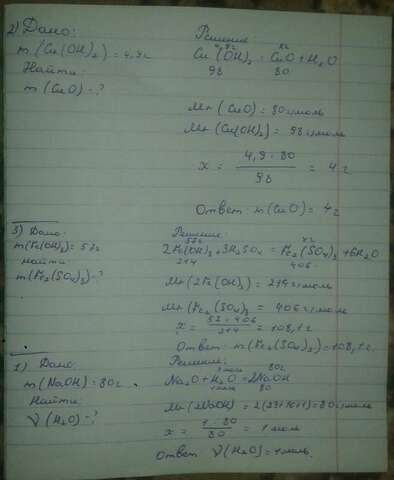 2) Дано:
m(Cu(OH)₂) = 4,9г
Найти:
m(CuO) - ?
Решение:
4,9г xг
Cu(OH)₂ = CuO + H₂O
98 80
Mr(CuO) = 80 г/моль
Mr(Cu(OH)₂) = 98 г/моль
x = 4,9 · 80 / 98 = 4 г
Ответ: m(CuO) = 4г
3) Дано:
m(Fe(OH)₃) = 57г
Найти:
m(Fe₂(SO₄)₃) - ?
Решение:
57г xг
2Fe(OH)₃ + 3H₂SO₄ = Fe₂(SO₄)₃ + 6H₂O
214 406
Mr(2Fe(OH)₃) = 214 г/моль
Mr(Fe₂(SO₄)₃) = 406 г/моль
x = 57 · 406 / 214 = 108,1 г
Ответ: m(Fe₂(SO₄)₃) = 108,1г.
1) Дано:
m(NaOH) = 80г
Найти:
ν(H₂O) - ?
Решение:
x моль 80г
Na₂O + H₂O = 2NaOH
1 моль 80
Mr(NaOH) = 2(23+16+1) = 80 г/моль
x = 1 · 80 / 80 = 1 моль
Ответ ν(H₂O) = 1 моль.